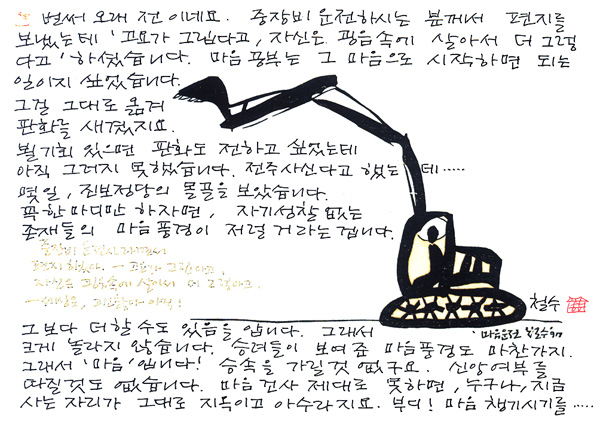 벌써 오래 전 이네요. 중장비 운전하시는 분께서 편지를
보냈는데 '고요가 그립다고, 자신은 굉음속에 살아서 더 그렇
다고' 하셨습니다. 마음공부는 그 마음으로 시작하면 되는
일이지 싶었습니다.
그걸 그대로 옮겨
판화를 새겼지요.
뵐 기회 있으면 판화도 전하고 싶었는데
아직 그러지 못했습니다. 전주사신다고 했는데.....
몇일, 진보정당의 몰골을 보았습니다.
꼭 한마디만 하자면, 자기성찰 없는
존재들의 마음풍경이 저럴 거라는겁니다.
중장비 운전사
편지했다. — 고요가 그립다고,
자신은 굉음속에 살아서 더 그렇다고.
철수
'마음운전
그보다 더할 수도 있음을 압니다. 그래서
크게 놀라지 않습니다. 승려들이 보여준 마음풍경도 마찬가지.
그래서 '마음'입니다! 승속을 가릴것 없구요. 신앙여부를
따질것도 없습니다. 마음건사 제대로 못하면, 누구나, 지금
사는 자리가 그대로 지옥이고 아수라지요. 부디! 마음 챙기시기를.....